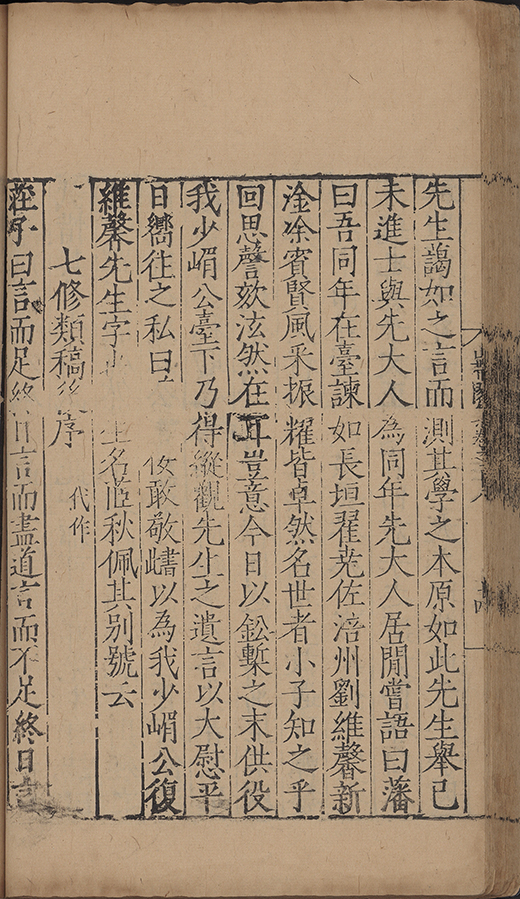 先生藹如之言而測其學之本原如此先生舉己
未進士與先大人為同年先大人居閒嘗語曰藩
曰吾同年在臺諫如長垣翟茪佐涪州劉維馨新
淦凃賓賢風采振耀皆卓然名世者小子知之乎
回思謦欬泫然在耳豈意今日以鈆槧之末供役
我少嵋公臺下乃得縱觀先生之遺言以大慰平
日嚮往之私曰 敢敬書以為我少嵋公復
維馨先生字 生名茝秋佩其別號云
七修類稿後序
代作
莊子曰言而足終日言而盡道言而不足終日言